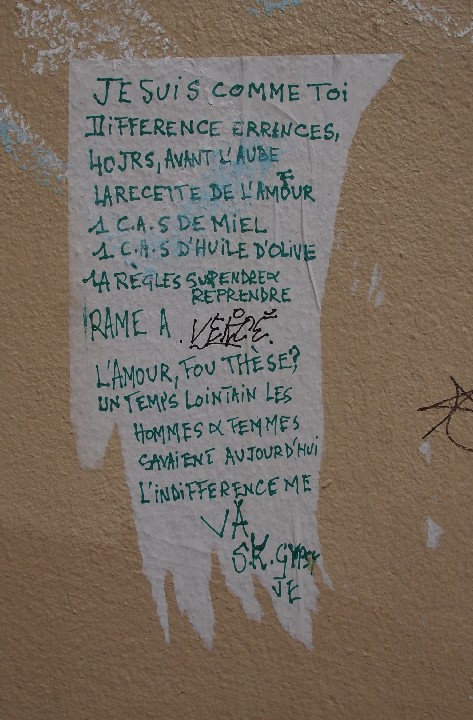 JE SUIS COMME TOI
DIFFERENCE ERRANCES,
40 JRS, AVANT L'AUBE
LA RECETTE DE L'AMOUR
1 C.A.S DE MIEL
1 C.A.S D'HUILE D'OLIVE
LA RÈGLES SUSPENDRE &
REPRENDRE
RAME A
L'AMOUR, FOU THÈSE?
UN TEMPS LOINTAIN LES
HOMMES & FEMMES
SAVAIENT AUJOURD'HUI
L'INDIFFERENCE ME
VA
S.K. GYPSY
JE